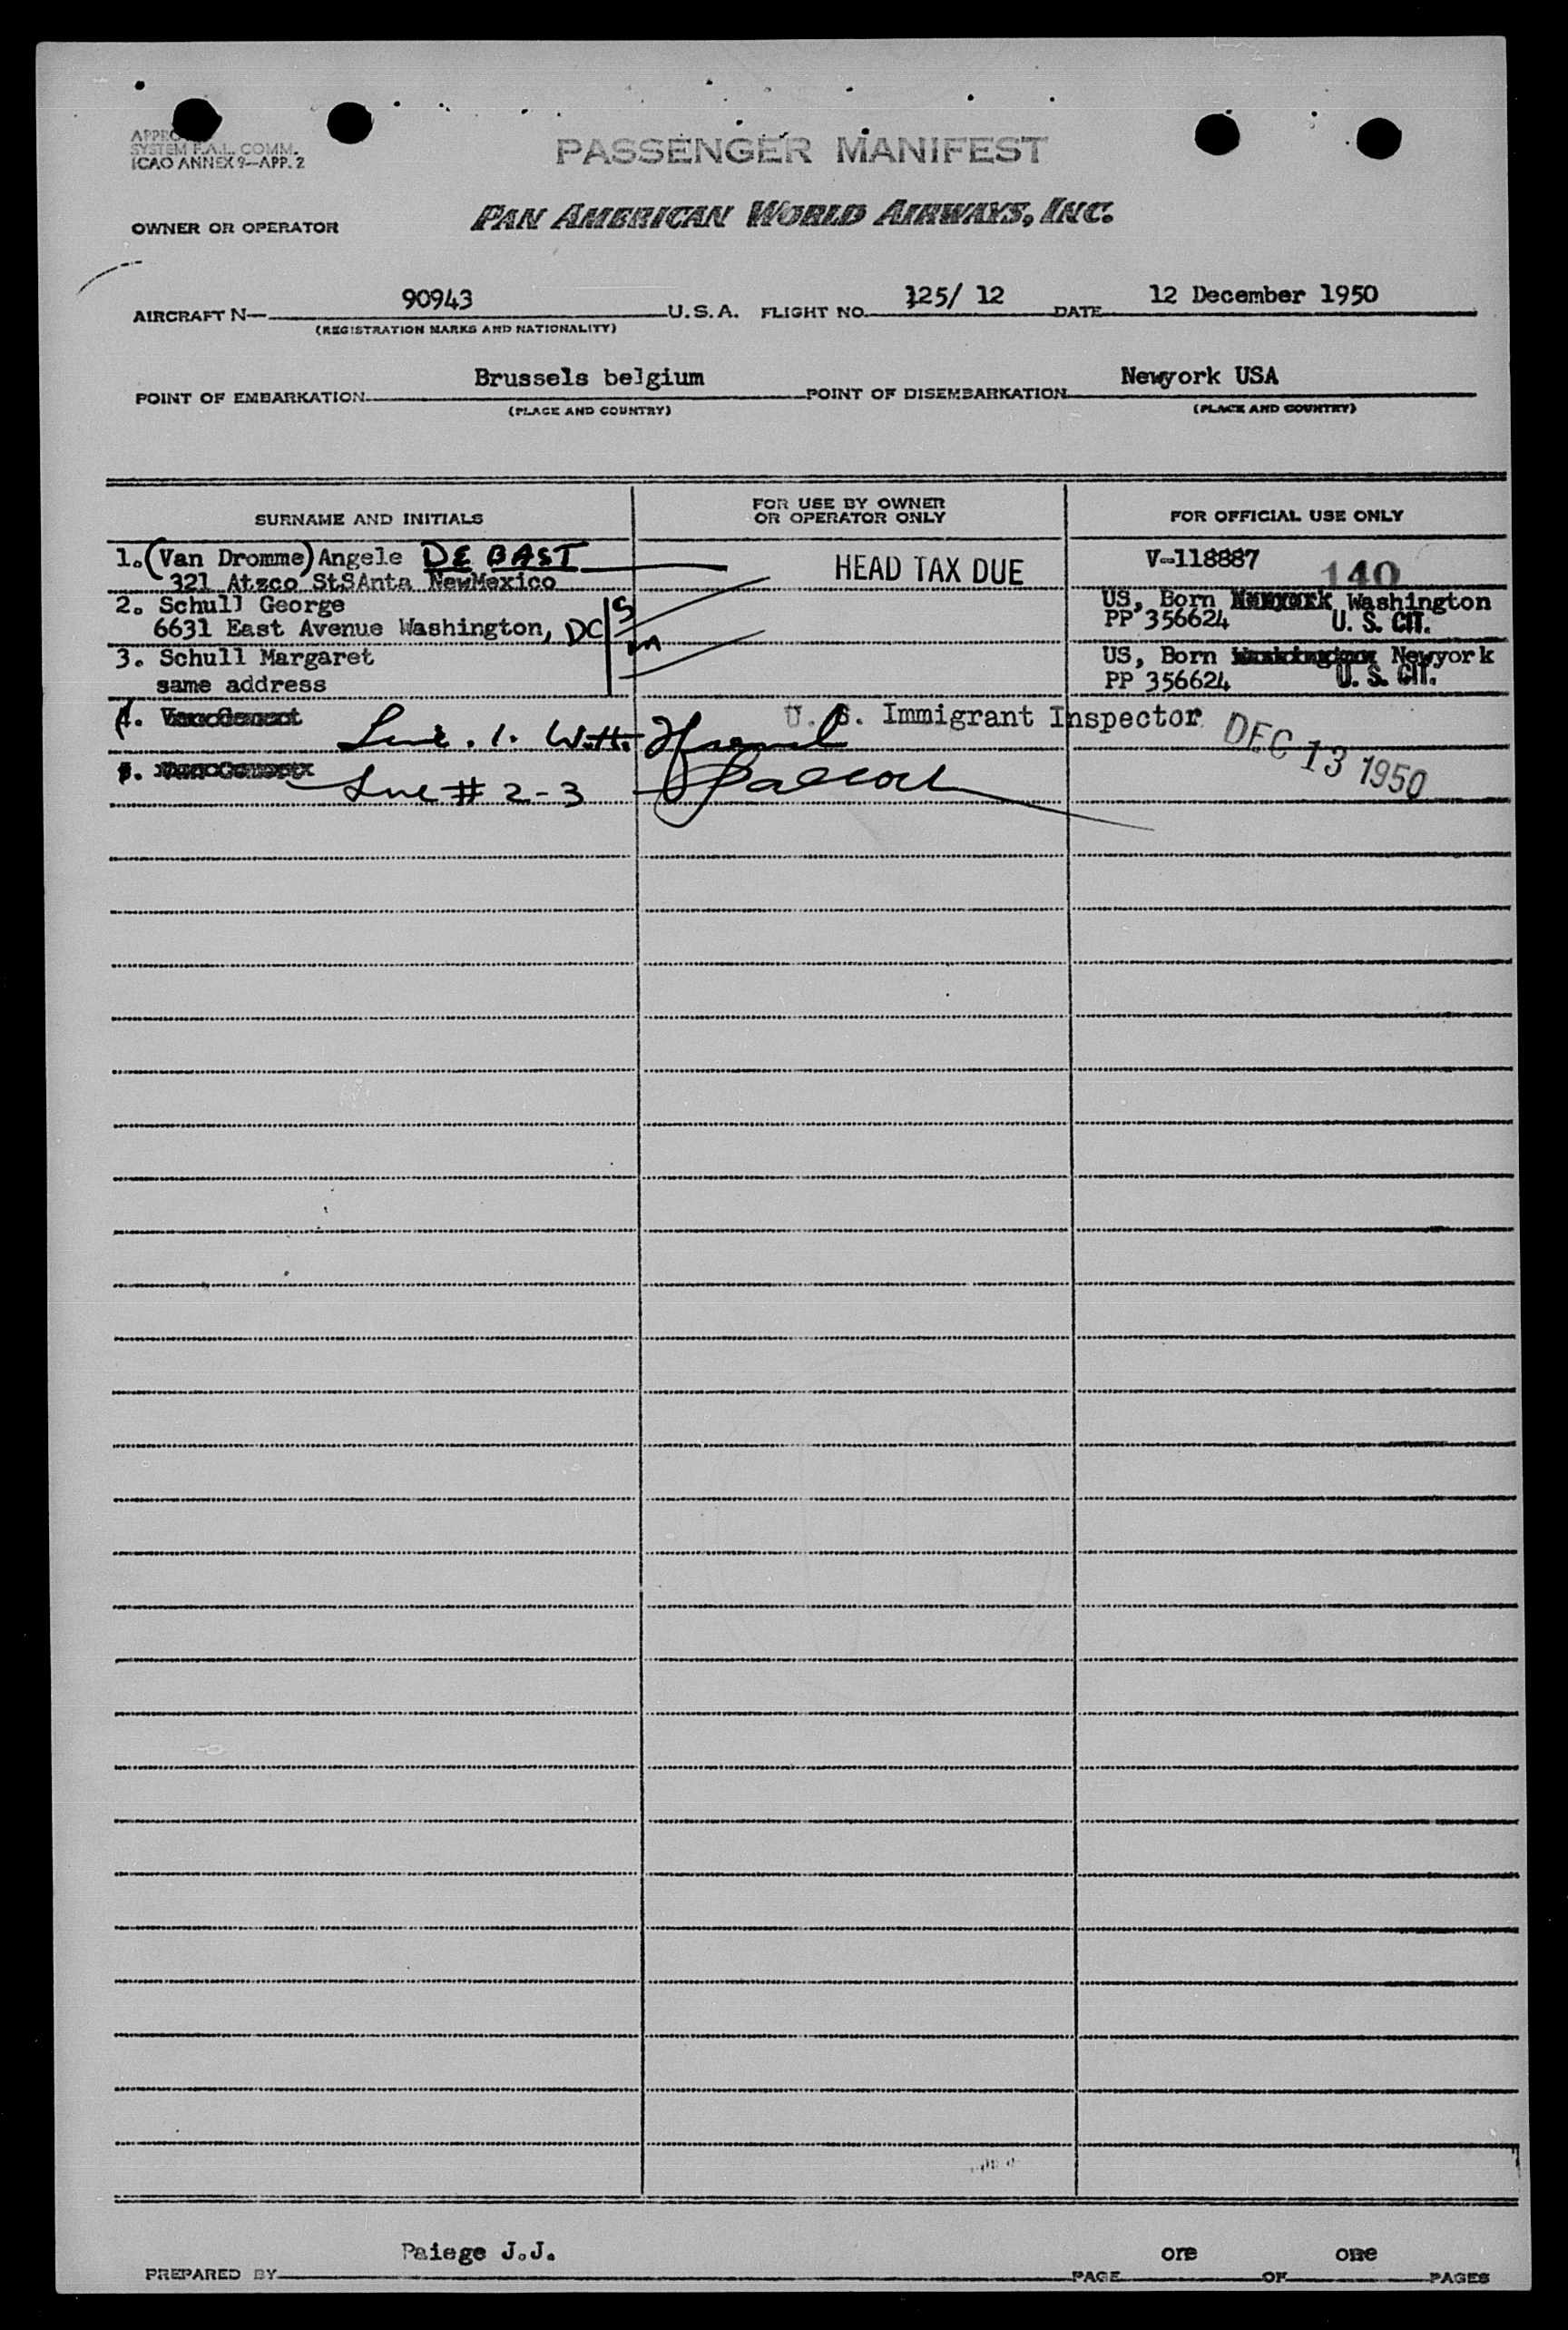 SYSTEM F.A.L. COMM.
ICAO ANNEX 9—APP. 2
PASSENGER MANIFEST
OWNER OR OPERATOR
PAN AMERICAN WORLD AIRWAYS, INC.
AIRCRAFT N— 90943 U.S.A. FLIGHT NO. 125/ 12 DATE 12 December 1950
(REGISTRATION MARKS AND NATIONALITY)
POINT OF EMBARKATION Brussels belgium POINT OF DISEMBARKATION Newyork USA
(PLACE AND COUNTRY) (PLACE AND COUNTRY)
SURNAME AND INITIALS
FOR USE BY OWNER
OR OPERATOR ONLY
FOR OFFICIAL USE ONLY
1. (Van Dromme) Angele DE BAST HEAD TAX DUE V-118887
321 Atzco StSAnta NewMexico 140
2. Schull George US, Born Washington
6631 East Avenue Washington, DC PP 356624 U. S. CIT.
3. Schull Margaret US, Born Newyork
same address PP 356624 U. S. CIT.
4. U. S. Immigrant Inspector
Line. 1.
DEC 13 1950
5.
Line # 2-3
Paiege J.J. one one
PREPARED BY PAGE OF PAGES